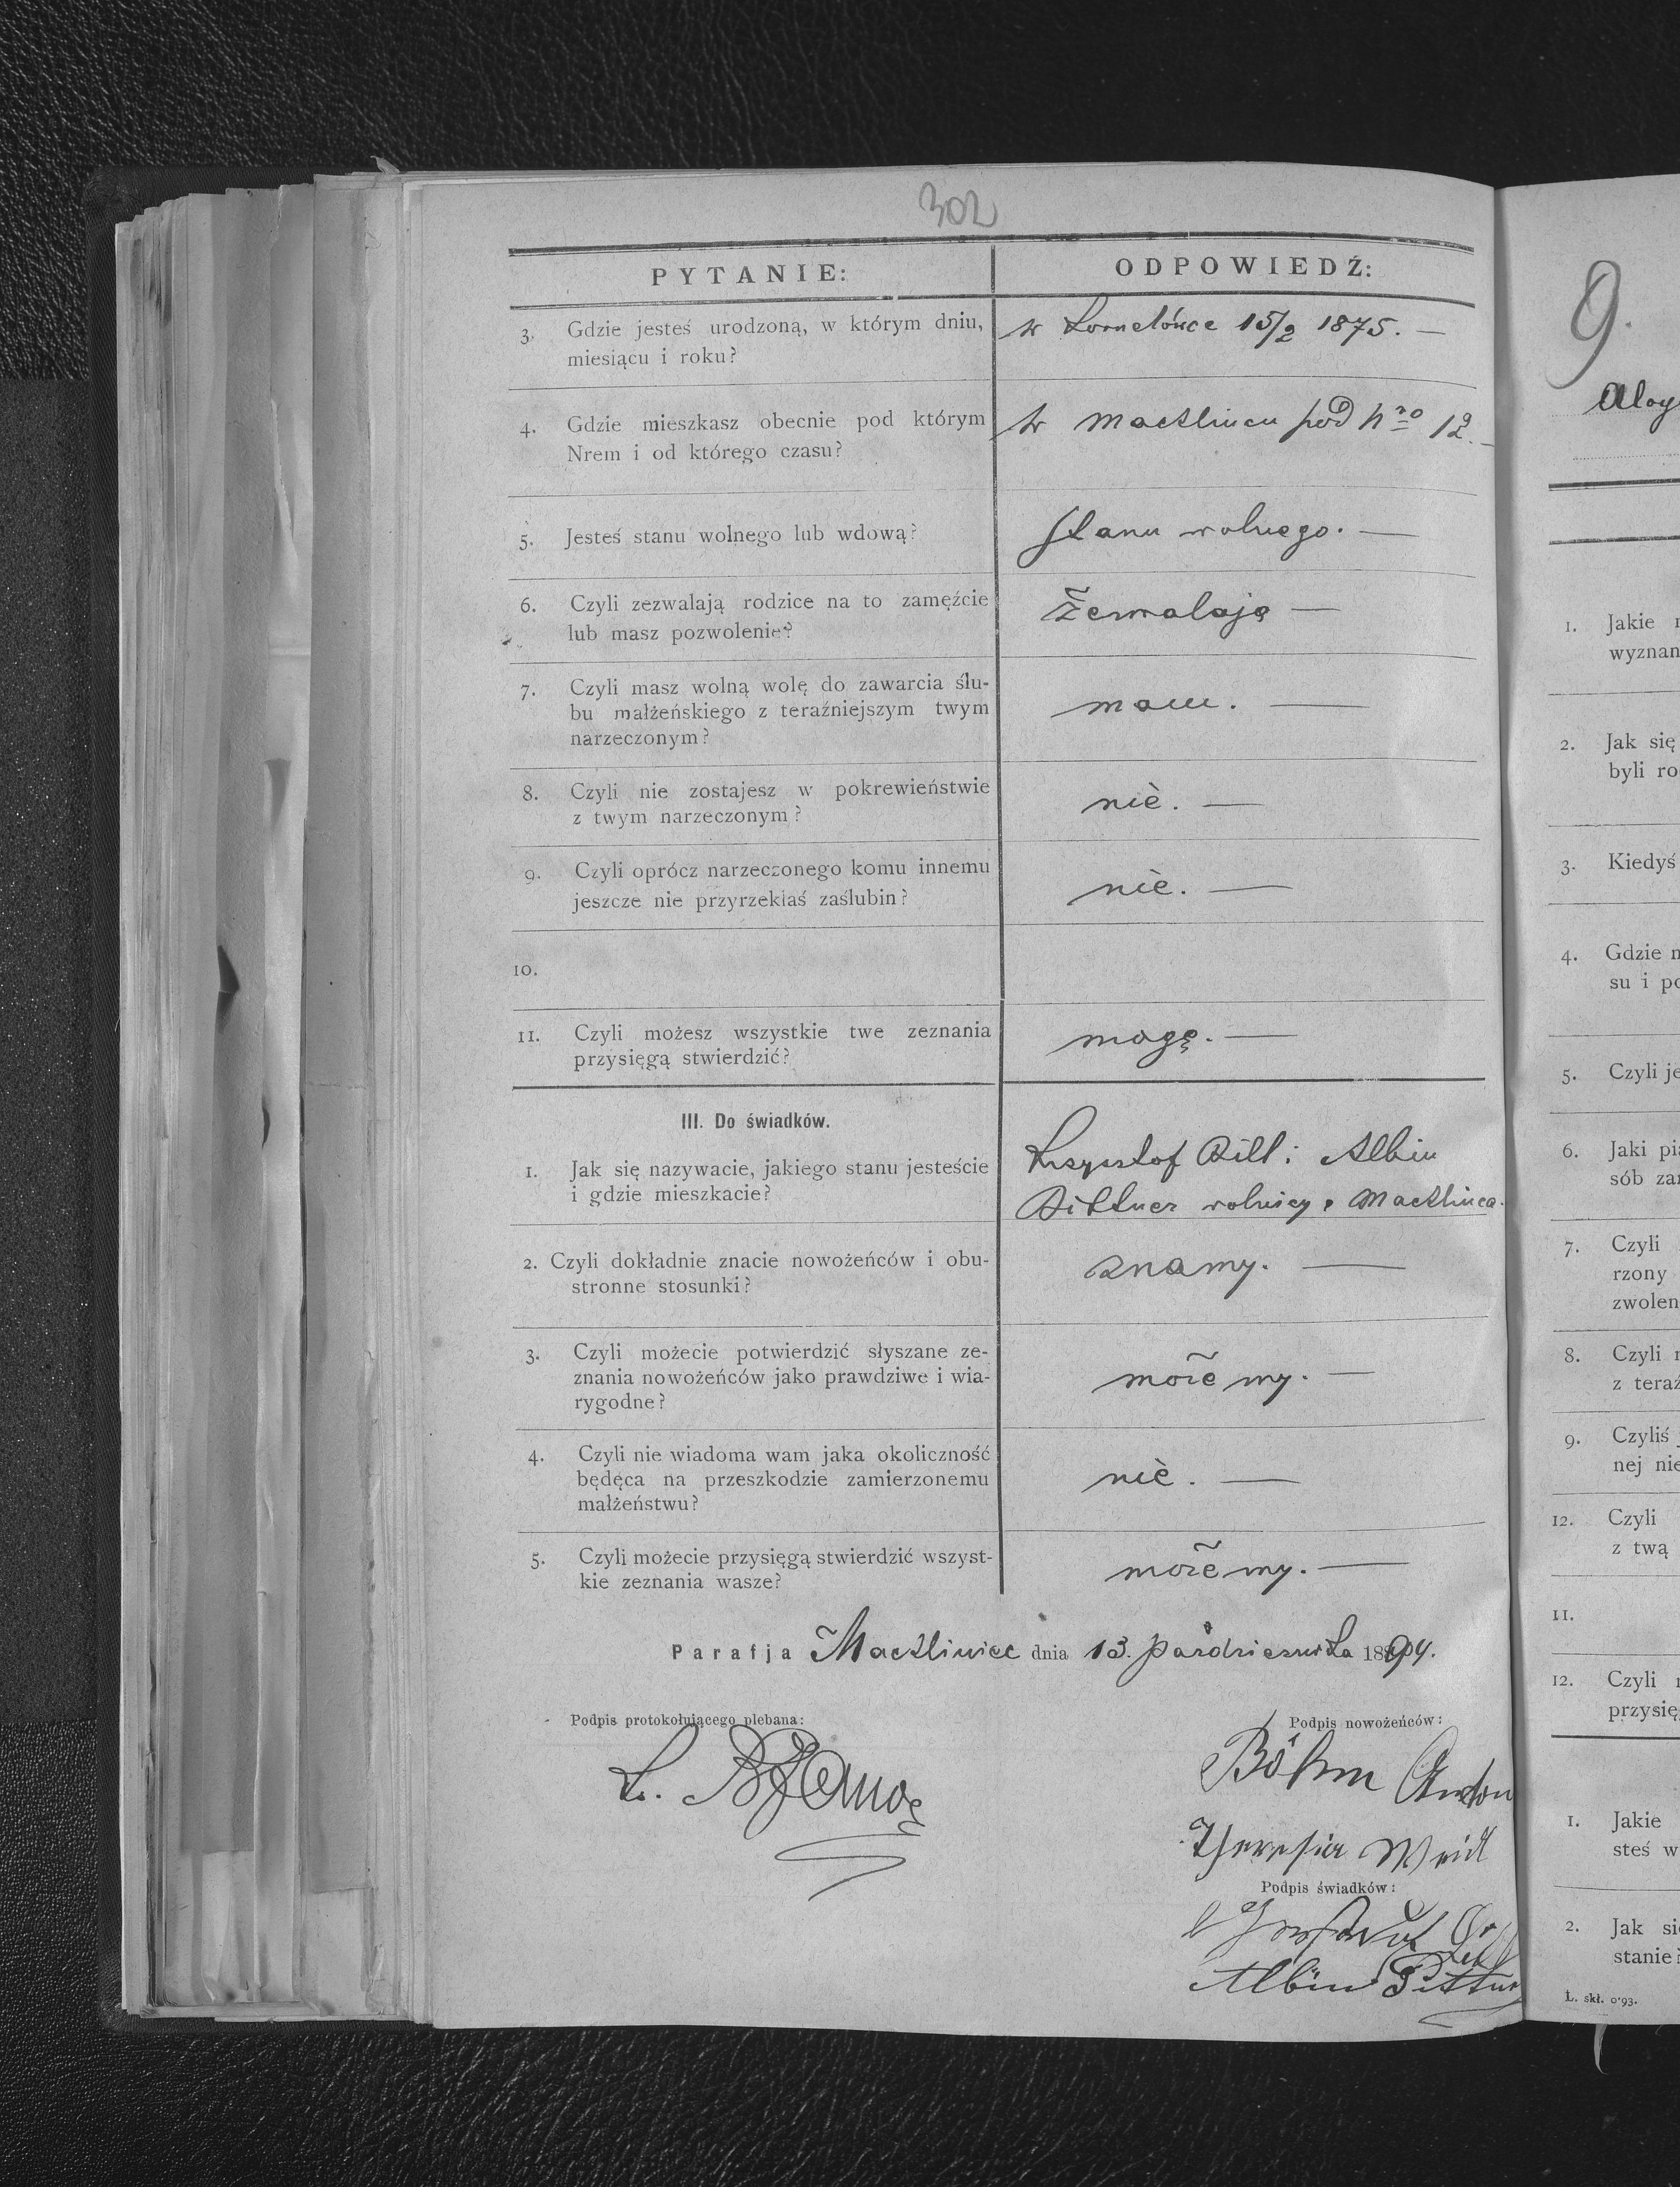 302
PYTANIE:
ODPOWIEDŹ:
3. Gdzie jesteś urodzoną, w którym dniu,
miesiącu i roku?
w Kornelówce 15/2 1875. —
4. Gdzie mieszkasz obecnie pod którym
Nrem i od którego czasu?
w Machlincu pod nro 12. —
5. Jesteś stanu wolnego lub wdową?
stanu wolnego. —
6. Czyli zezwalają rodzice na to zamęźcie
lub masz pozwolenie?
Zezwalają —
7. Czyli masz wolną wolę do zawarcia ślu-
bu małżeńskiego z teraźniejszym twym
narzeczonym?
mam. —
8. Czyli nie zostajesz w pokrewieństwie
z twym narzeczonym?
nie. —
9. Czyli oprócz narzeczonego komu innemu
jeszcze nie przyrzekłaś zaślubin?
nie. —
10.
11. Czyli możesz wszystkie twe zeznania
przysięgą stwierdzić?
mogę. —
III. Do świadków.
1. Jak się nazywacie, jakiego stanu jesteście
i gdzie mieszkacie?
Krzysztof i Albin
Bittner rolnicy z Machlinca.
2. Czyli dokładnie znacie nowożeńców i obu-
stronne stosunki?
znamy. —
3. Czyli możecie potwierdzić słyszane ze-
znania nowożeńców jako prawdziwe i wia-
rygodne?
możemy. —
4. Czyli nie wiadoma wam jaka okoliczność
będęca na przeszkodzie zamierzonemu
małżeństwu?
nie. —
5. Czyli możecie przysięgą stwierdzić wszyst-
kie zeznania wasze?
możemy. —
Parafja Machliniec dnia 13. października 1904.
Podpis protokołującego plebana:
Podpis nowożeńców:
L.
Böhm Anton
Theresia Weidl
Podpis świadków:
Albin Pittner
9.
Aloy
1. Jakie
wyznan
2. Jak się
byli ro
3. Kiedyś
4. Gdzie m
su i po
5. Czyli je
6. Jaki pia
sób zar
7. Czyli
rzony
zwolen
8. Czyli
z teraź
9. Czyliś
nej nie
12. Czyli
z twą
11.
12. Czyli
przysię
1. Jakie
steś w
2. Jak się
stanie?
L. skł. 0'93.